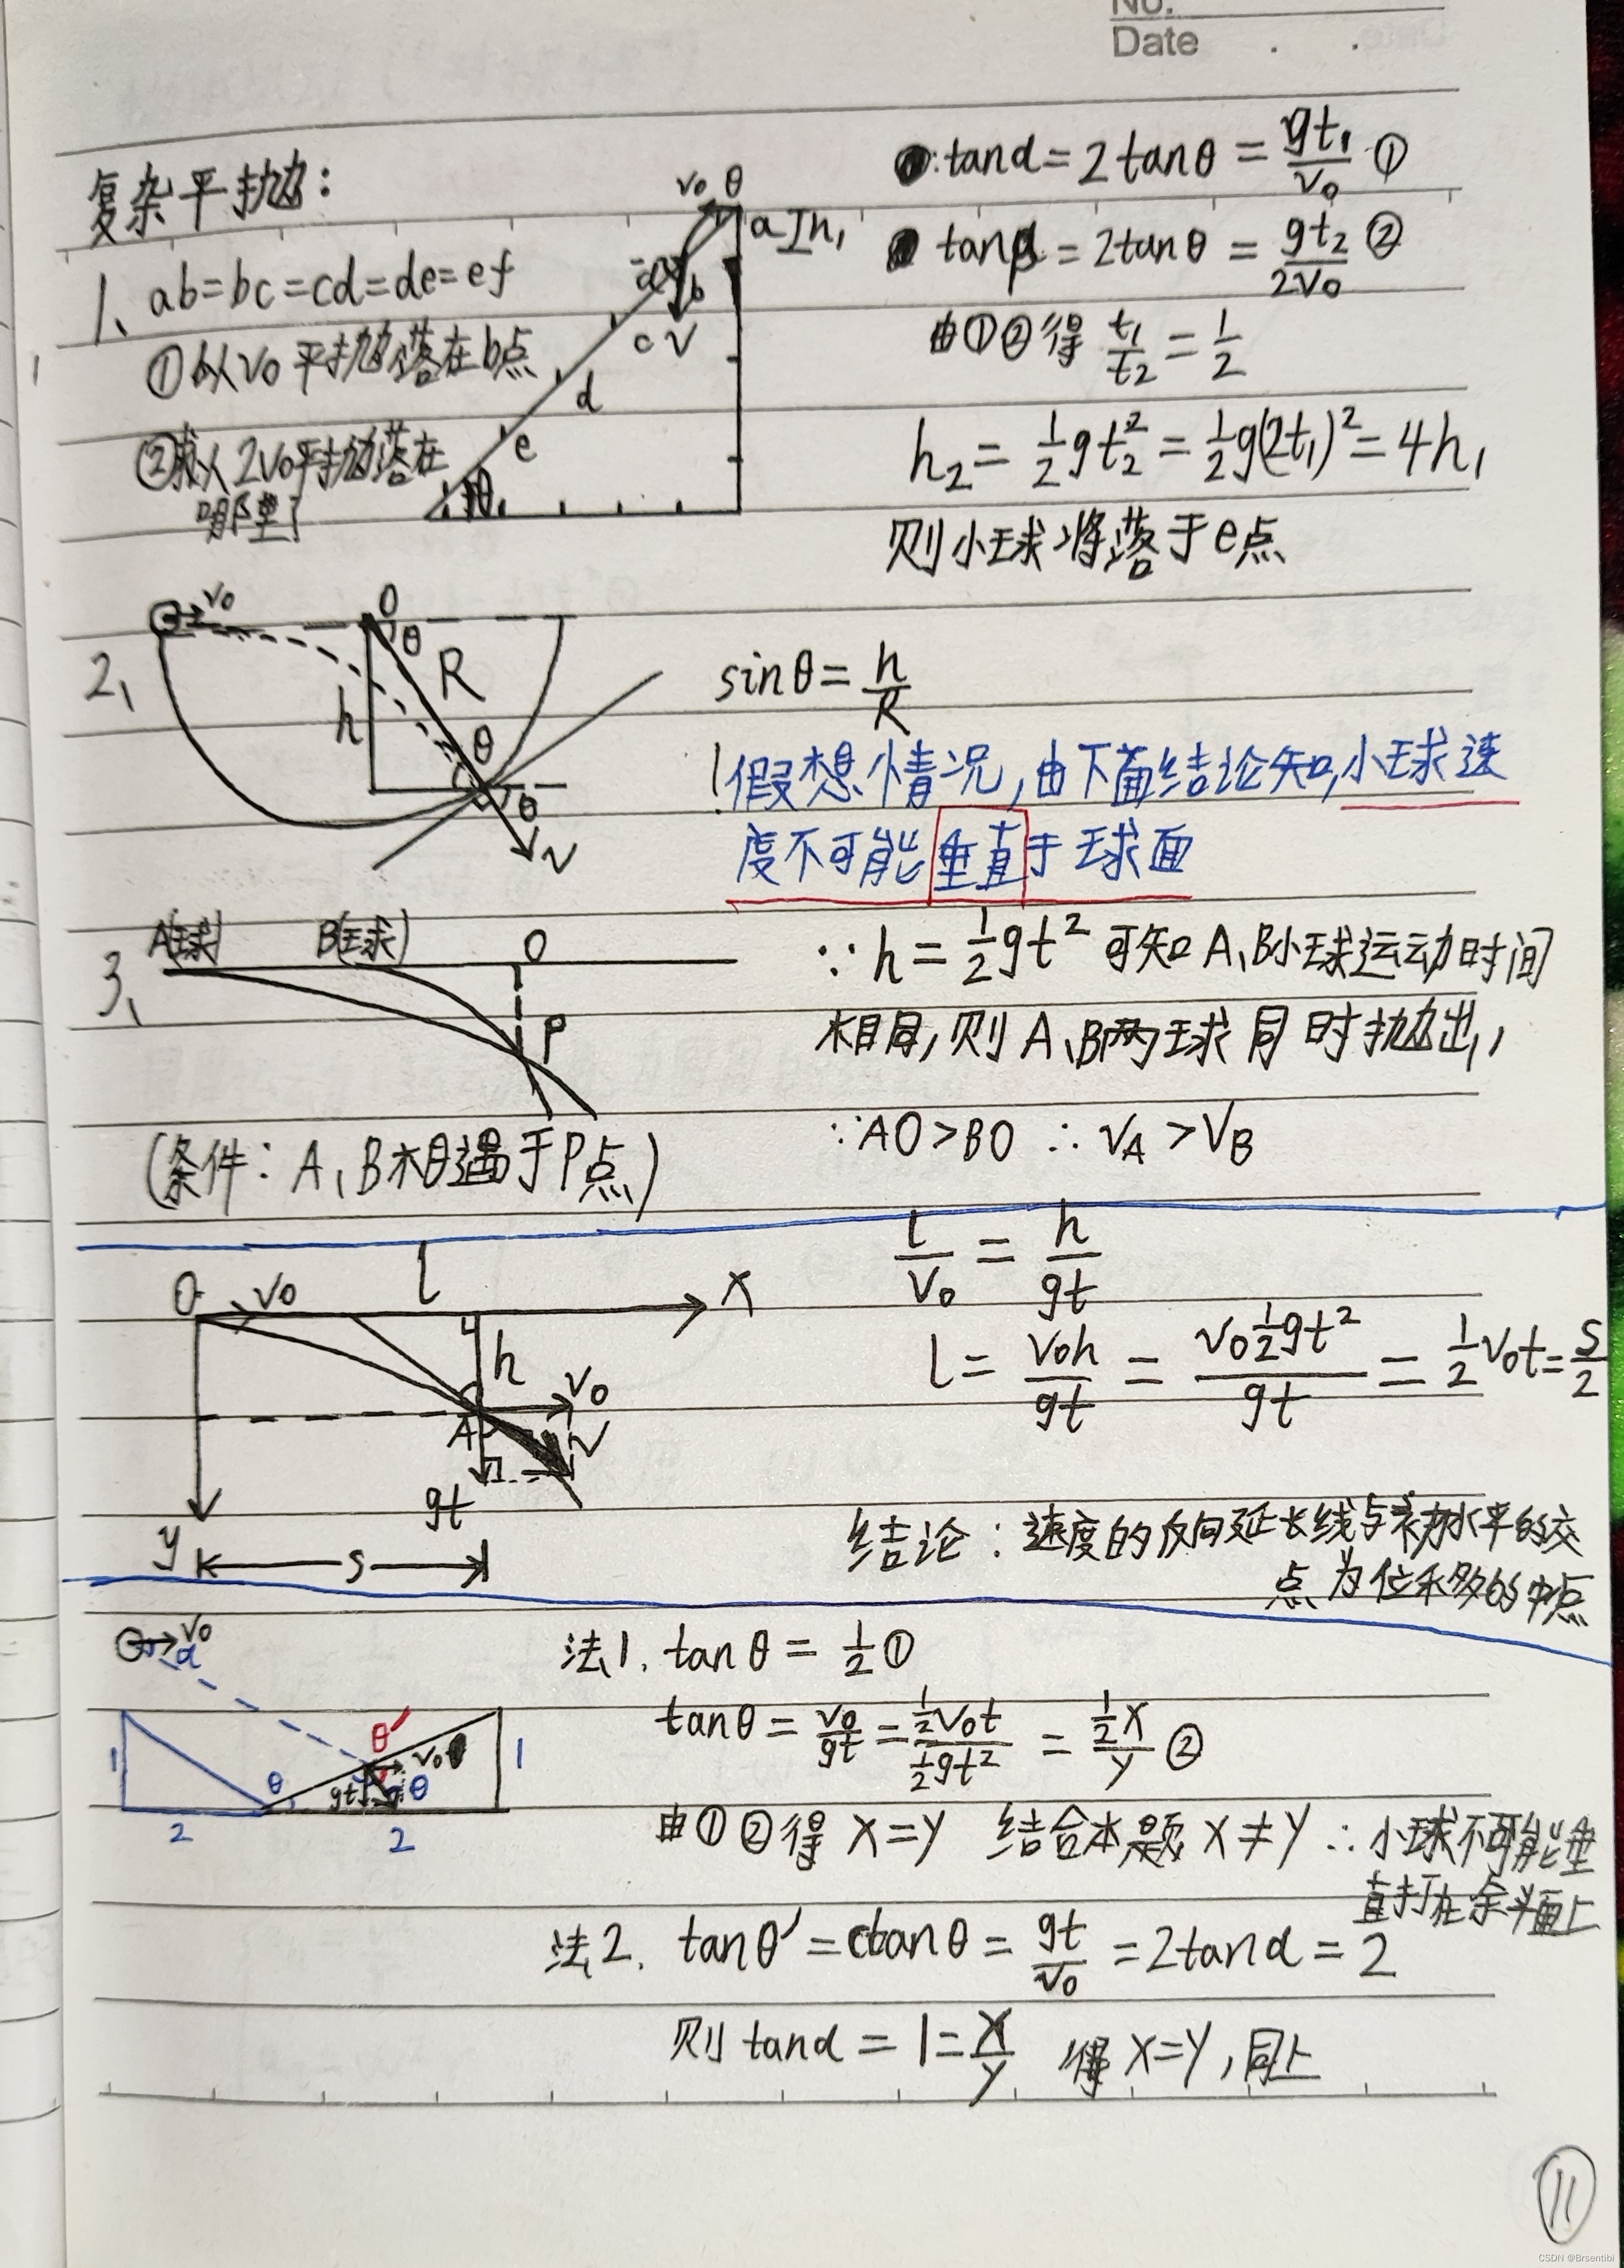 No.
Date . .
复杂平抛：
1、ab=bc=cd=de=ef
①以v₀平抛落在b点
②求以2v₀平抛落在
哪里？
v₀ θ
a h₁
α b
c v
d
e
θ
tanα = 2tanθ = gt₁/v₀ ①
tanβ = 2tanθ = gt₂/2v₀ ②
由①②得 t₁/t₂ = 1/2
h₂ = ½gt₂² = ½g(2t₁)² = 4h₁
则小球将落于e点
2、
v₀ O
θ
R
h
θ
θ
v
sinθ = h/R
！假想情况，由下面结论知，小球速
度不可能垂直于球面
3、
A(球) B(球) O
P
(条件：A、B相遇于P点)
∵h = ½gt² 可知A、B小球运动时间
相同，则A、B两球同时抛出，
∵AO>BO ∴vA>vB
O v₀ l x
h
v₀
A
v
gt
y s
l/v₀ = h/gt
l = v₀h/gt = v₀½gt²/gt = ½v₀t = s/2
结论：速度的反向延长线与初水平的交
点为位移的中点
v₀
α
θ′
v₀
1 θ gt θ 1
2 2
法1. tanθ = ½ ①
tanθ = v₀/gt = ½v₀t/½gt² = ½x/y ②
由①②得 x=y 结合本题 x≠y ∴小球不可能垂
直打在斜面上
法2. tanθ′ = ctanθ = gt/v₀ = 2tanα = 2
则 tanα = 1 = x/y 得 x=y，同上
11
CSDN @Brsentibi